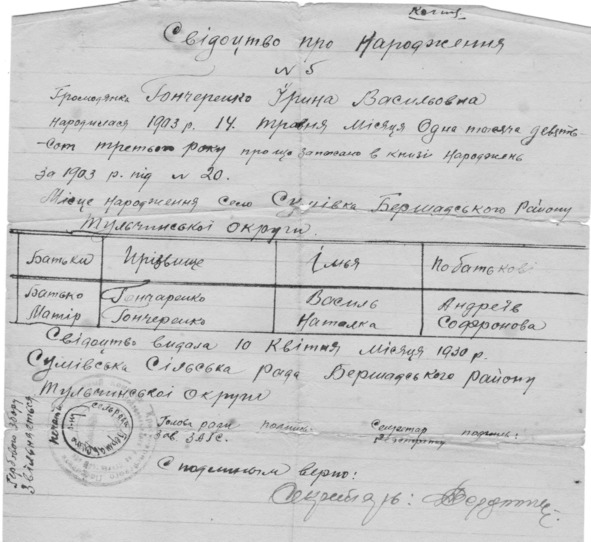 Копия
Свідоцтво про Народження
N 5
Громодянка Гончеренко Ірина Васильовна
народилася 1903 р. 14. травня місяця Одна тисяча девять
-сот третього року про що записано в книзі Народжень
за 1903 р. під N 20.
Місце народження село Сумівка Бершадського Району
Тульчинської Округи.
Батьки Прізвище Імья По батькові
Батько Гончаренко Василь Андреїв
Матір Гончеренко Наталка Софронова
Свідоцтво видала 10 Квітня місяця 1930 р.
Сумівська Сільська рада Бершадського Району
Тульчинської Округи
Гербового збору
Звільняеться
печать
Голова ради подпись: Секретар подпись:
Зав. ЗАГС.
С подлинным верно:
Секретарь: